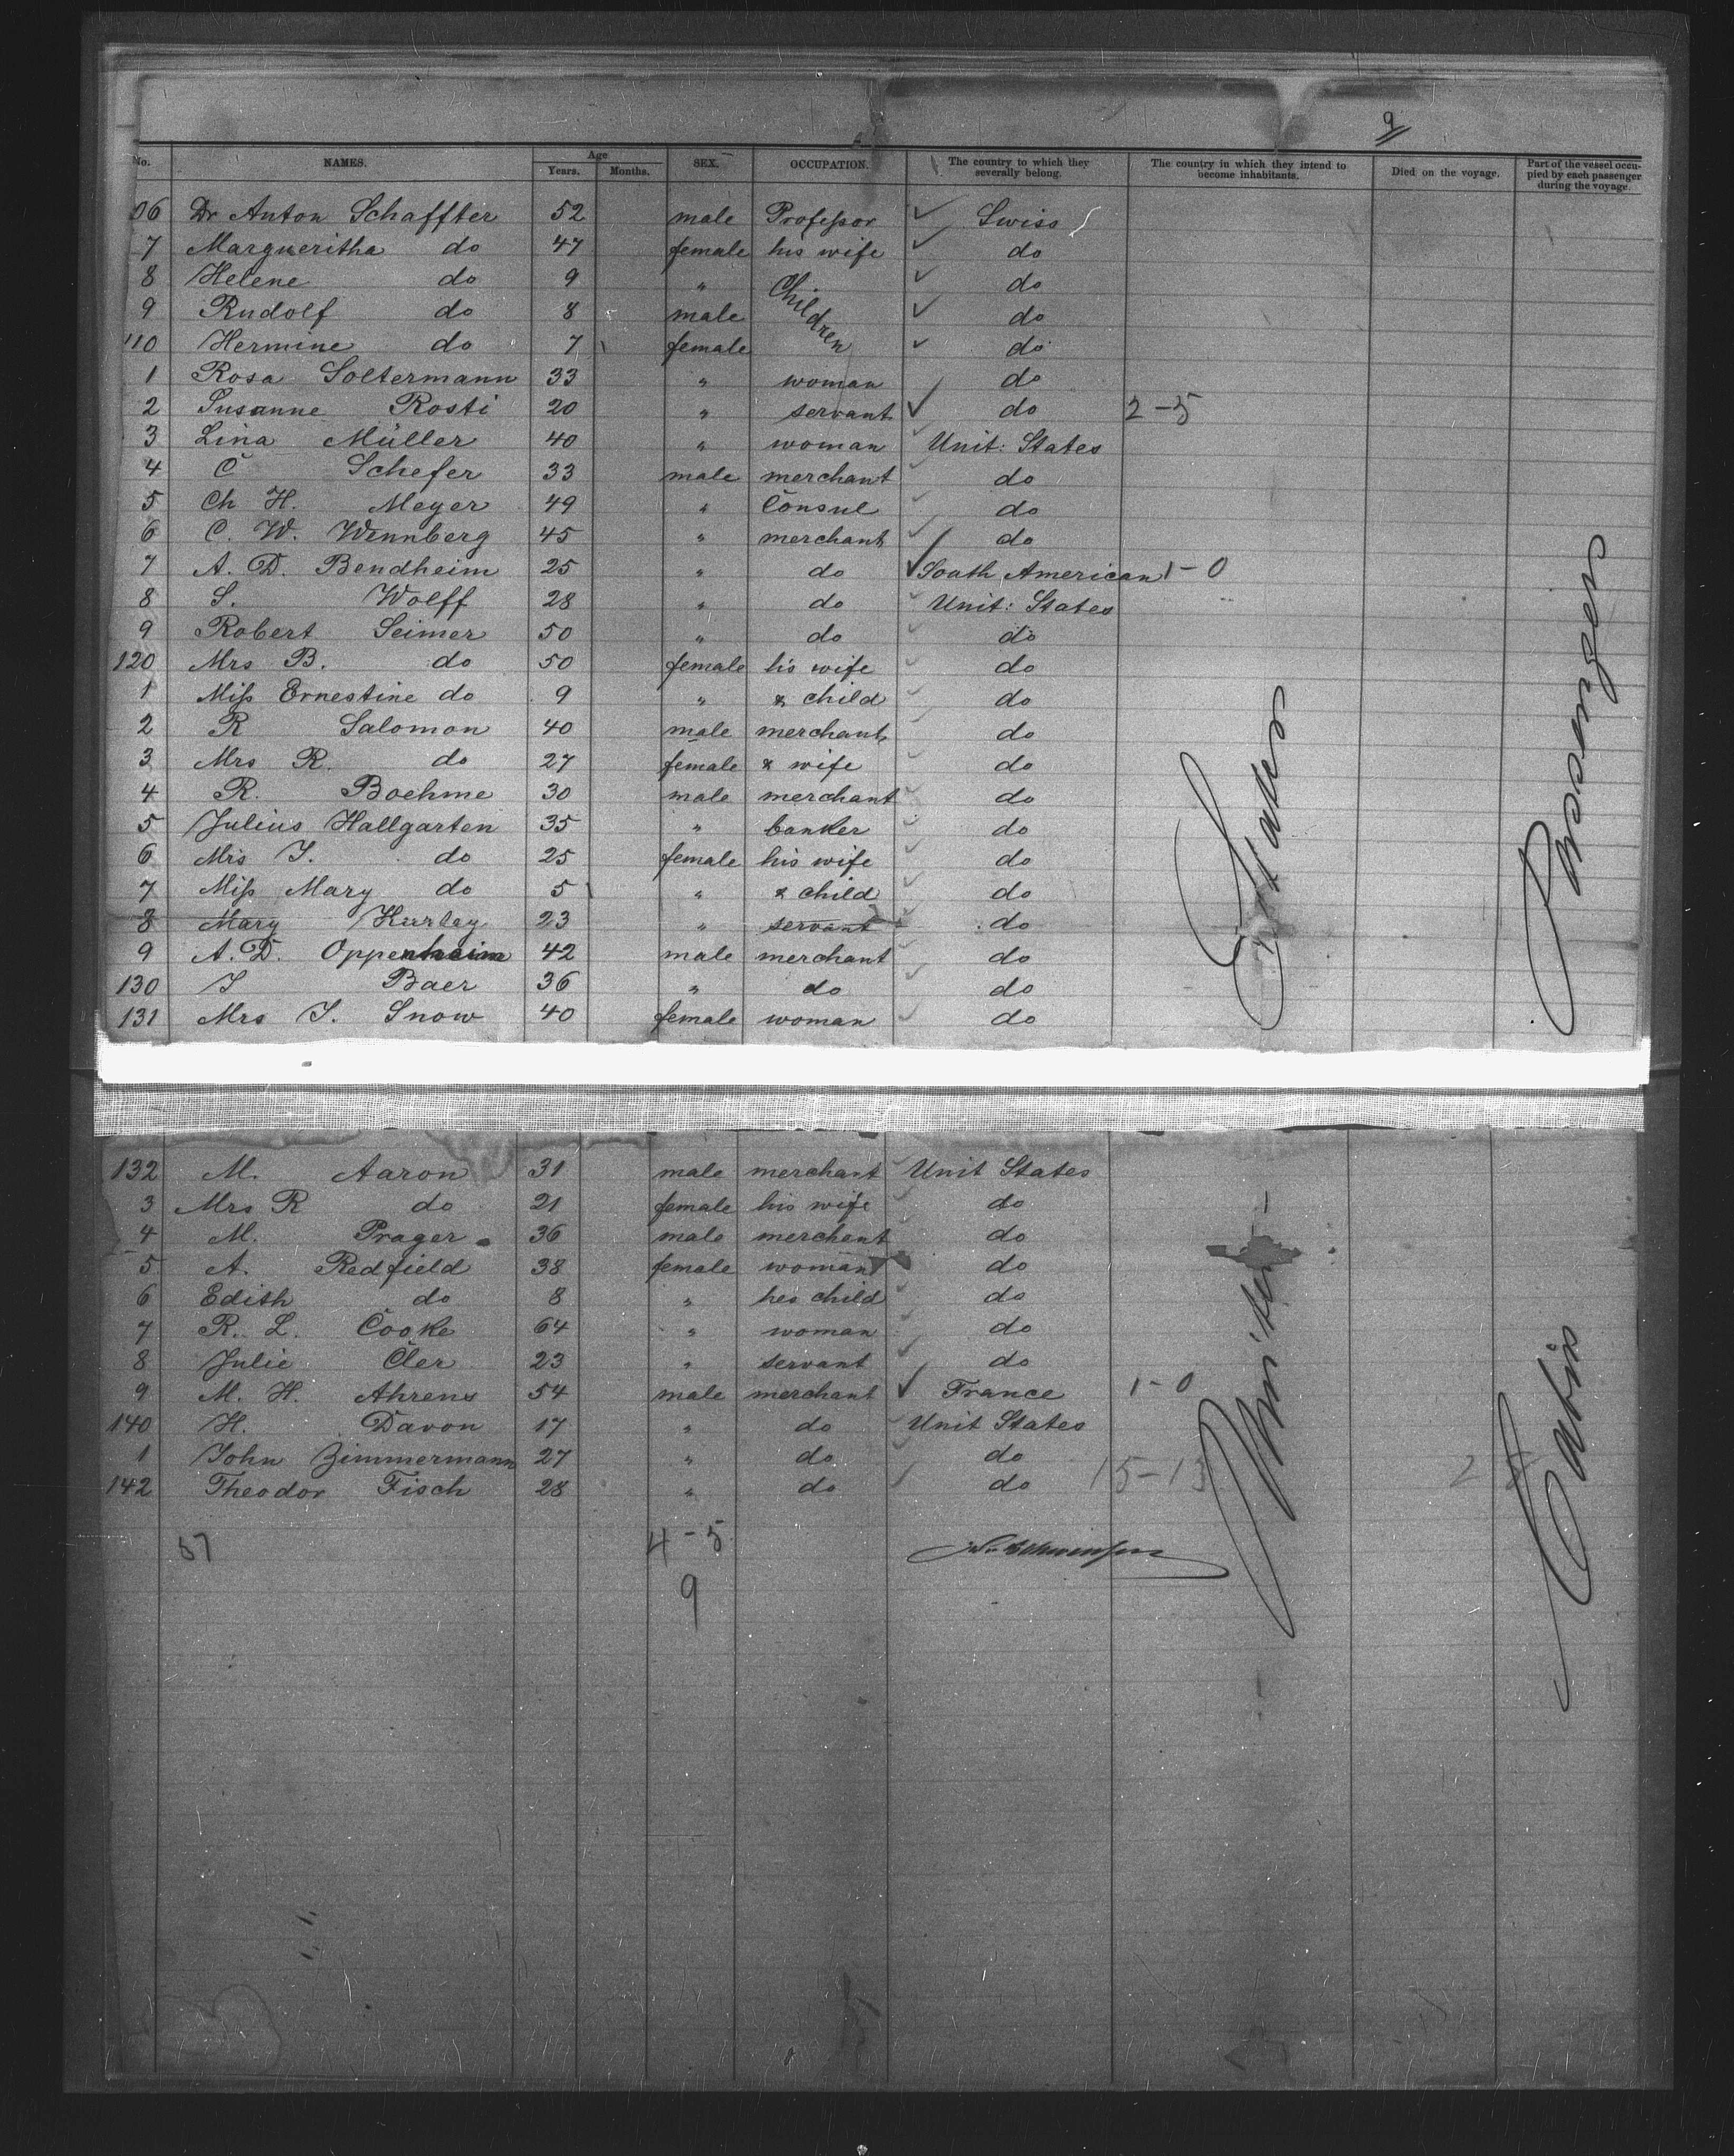 9
No. NAMES. Age Years. Months. SEX. OCCUPATION. The country to which they severally belong. The country in which they intend to become inhabitants. Died on the voyage. Part of the vessel occupied by each passenger during the voyage.
06 Dr Anton Schaffter 52 male Professor Swiss
7 Margueritha do 47 female his wife do
8 Helene do 9 " Children do
9 Rudolf do 8 male do
110 Hermine do 7 female do
1 Rosa Soltermann 33 " woman do
2 Susanne Rosti 20 " servant do 2-5
3 Lina Müller 40 " woman Unit: States
4 C Schefer 33 male merchant do
5 Ch H. Meyer 49 " Consul do
6 C. W. Wennberg 45 " merchant do
7 A. D. Bendheim 25 " do South American 1-0
8 S. Wolff 28 " do Unit: States
9 Robert Seimer 50 " do do
120 Mrs B. do 50 female his wife do
1 Miss Ernestine do 9 " & child do
2 R Salomon 40 male merchant do
3 Mrs R. do 27 female & wife do
4 R. Boehme 30 male merchant do
5 Julius Hallgarten 35 " banker do
6 Mrs J. do 25 female his wife do
7 Miss Mary do 5 " & child do
8 Mary Hurley 23 " servant do
9 A. D. Oppenheim 42 male merchant do
130 J Baer 36 " do do
131 Mrs J. Snow 40 female woman do
132 M. Aaron 31 male merchant Unit States
3 Mrs R do 21 female his wife do
4 M. Prager 36 male merchant do
5 A. Redfield 38 female woman do
6 Edith do 8 " her child do
7 R. L. Cooke 64 " woman do
8 Julie Cler 23 " servant do
9 M. H. Ahrens 54 male merchant France 1-0
140 H. Davon 17 " do Unit States
1 John Zimmermann 27 " do do
142 Theodor Fisch 28 " do do 15-13
United States
Cabin Passengers
37 4-5
9